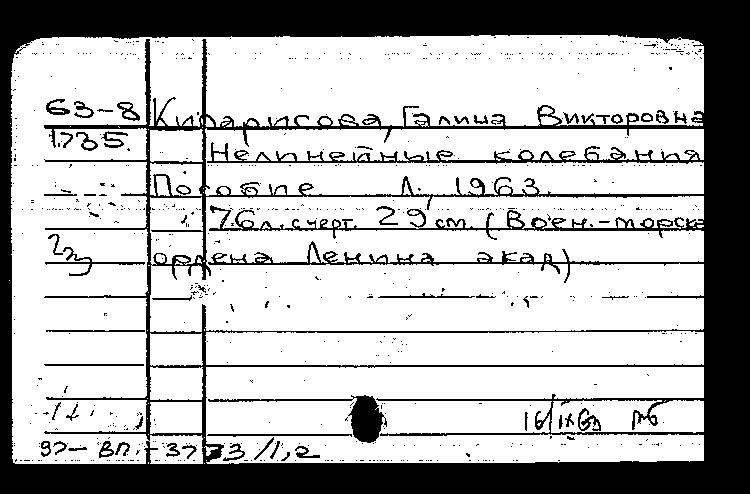 63-8 Кипарисова, Галина Викторовна
1735. Нелинейные колебания
Пособие Л., 1963.
76 л. с черт. 29 см. (Воен.-морска
ордена Ленина акад)
16/IX